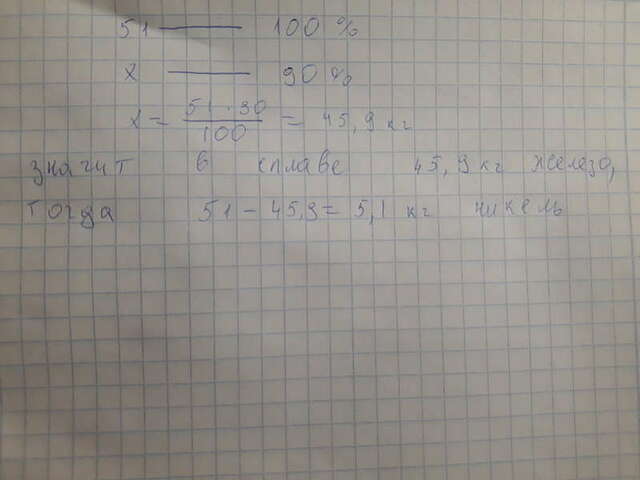 51 —— 100 %
x —— 90 %
x = 51 · 90 / 100 = 45,9 кг
значит в сплаве 45,9 кг железо,
тогда 51 - 45,9 = 5,1 кг никель